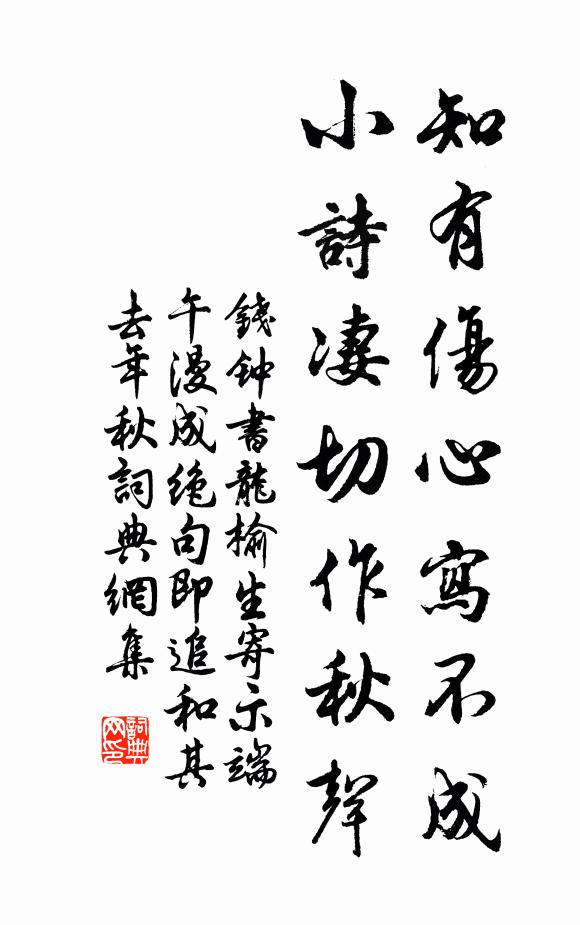 知有傷心寫不成
小詩凄切作秋聲
錢钟書龍榆生寄示端
午漫成绝句即追和其
去年秋詞典網集
詞典
网印